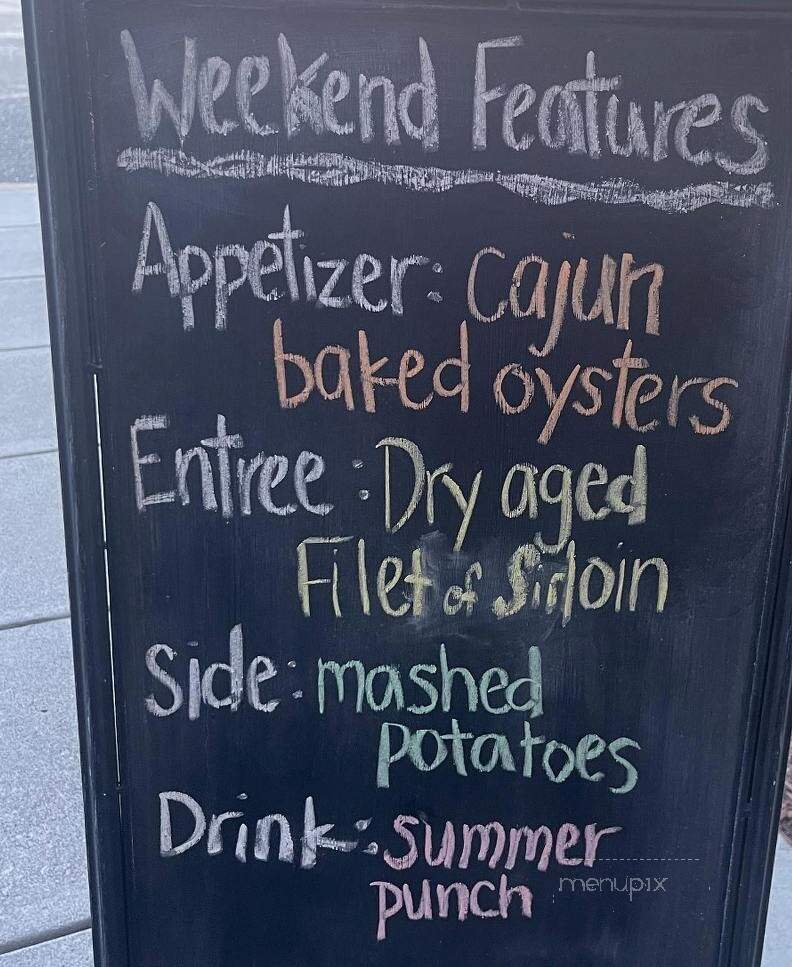 Weekend Features
Appetizer: Cajun
baked oysters
Entree: Dry aged
Filet of Sirloin
Side: mashed
potatoes
Drink: summer
punch
menupix